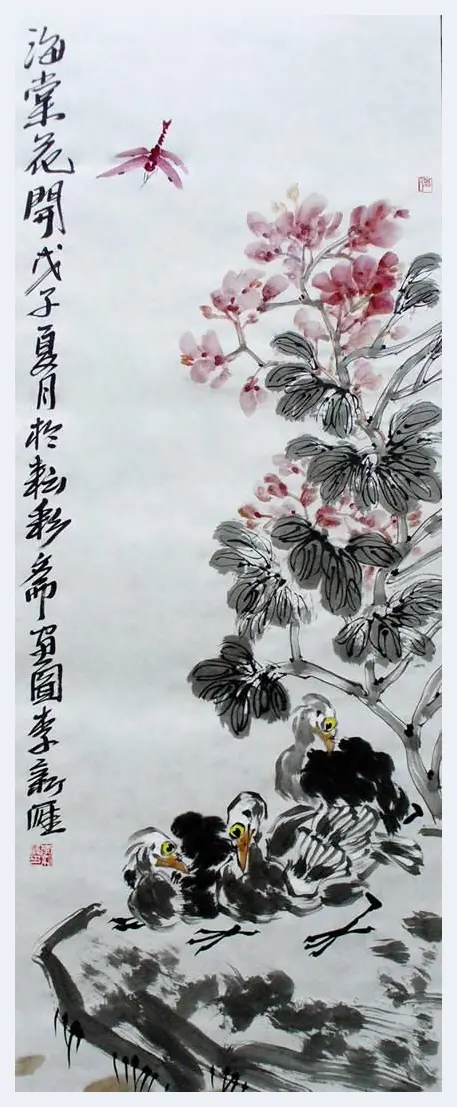 海棠花開戊子夏月於耘彩齋畫圖李新